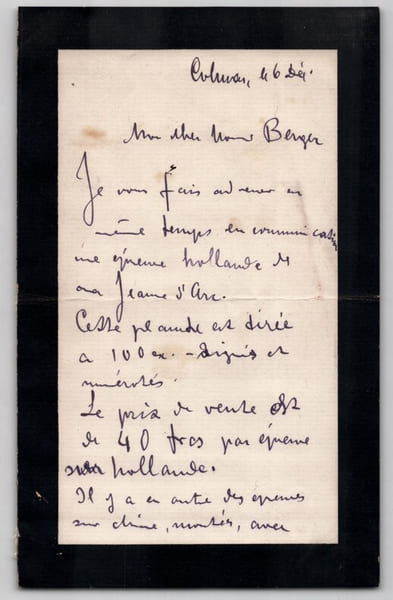 Colmar, le 6 Déc.
Mon cher Berger
Je vous fais adresser en
même temps en communication
une épreuve hollande de
ma Jeanne d'Arc.
Cette planche est tirée
à 100 ex. - signés et
numérotés.
Le prix de vente est
de 40 frcs par épreuve
sur hollande.
Il y a en outre des épreuves
sur chine, montés, avec